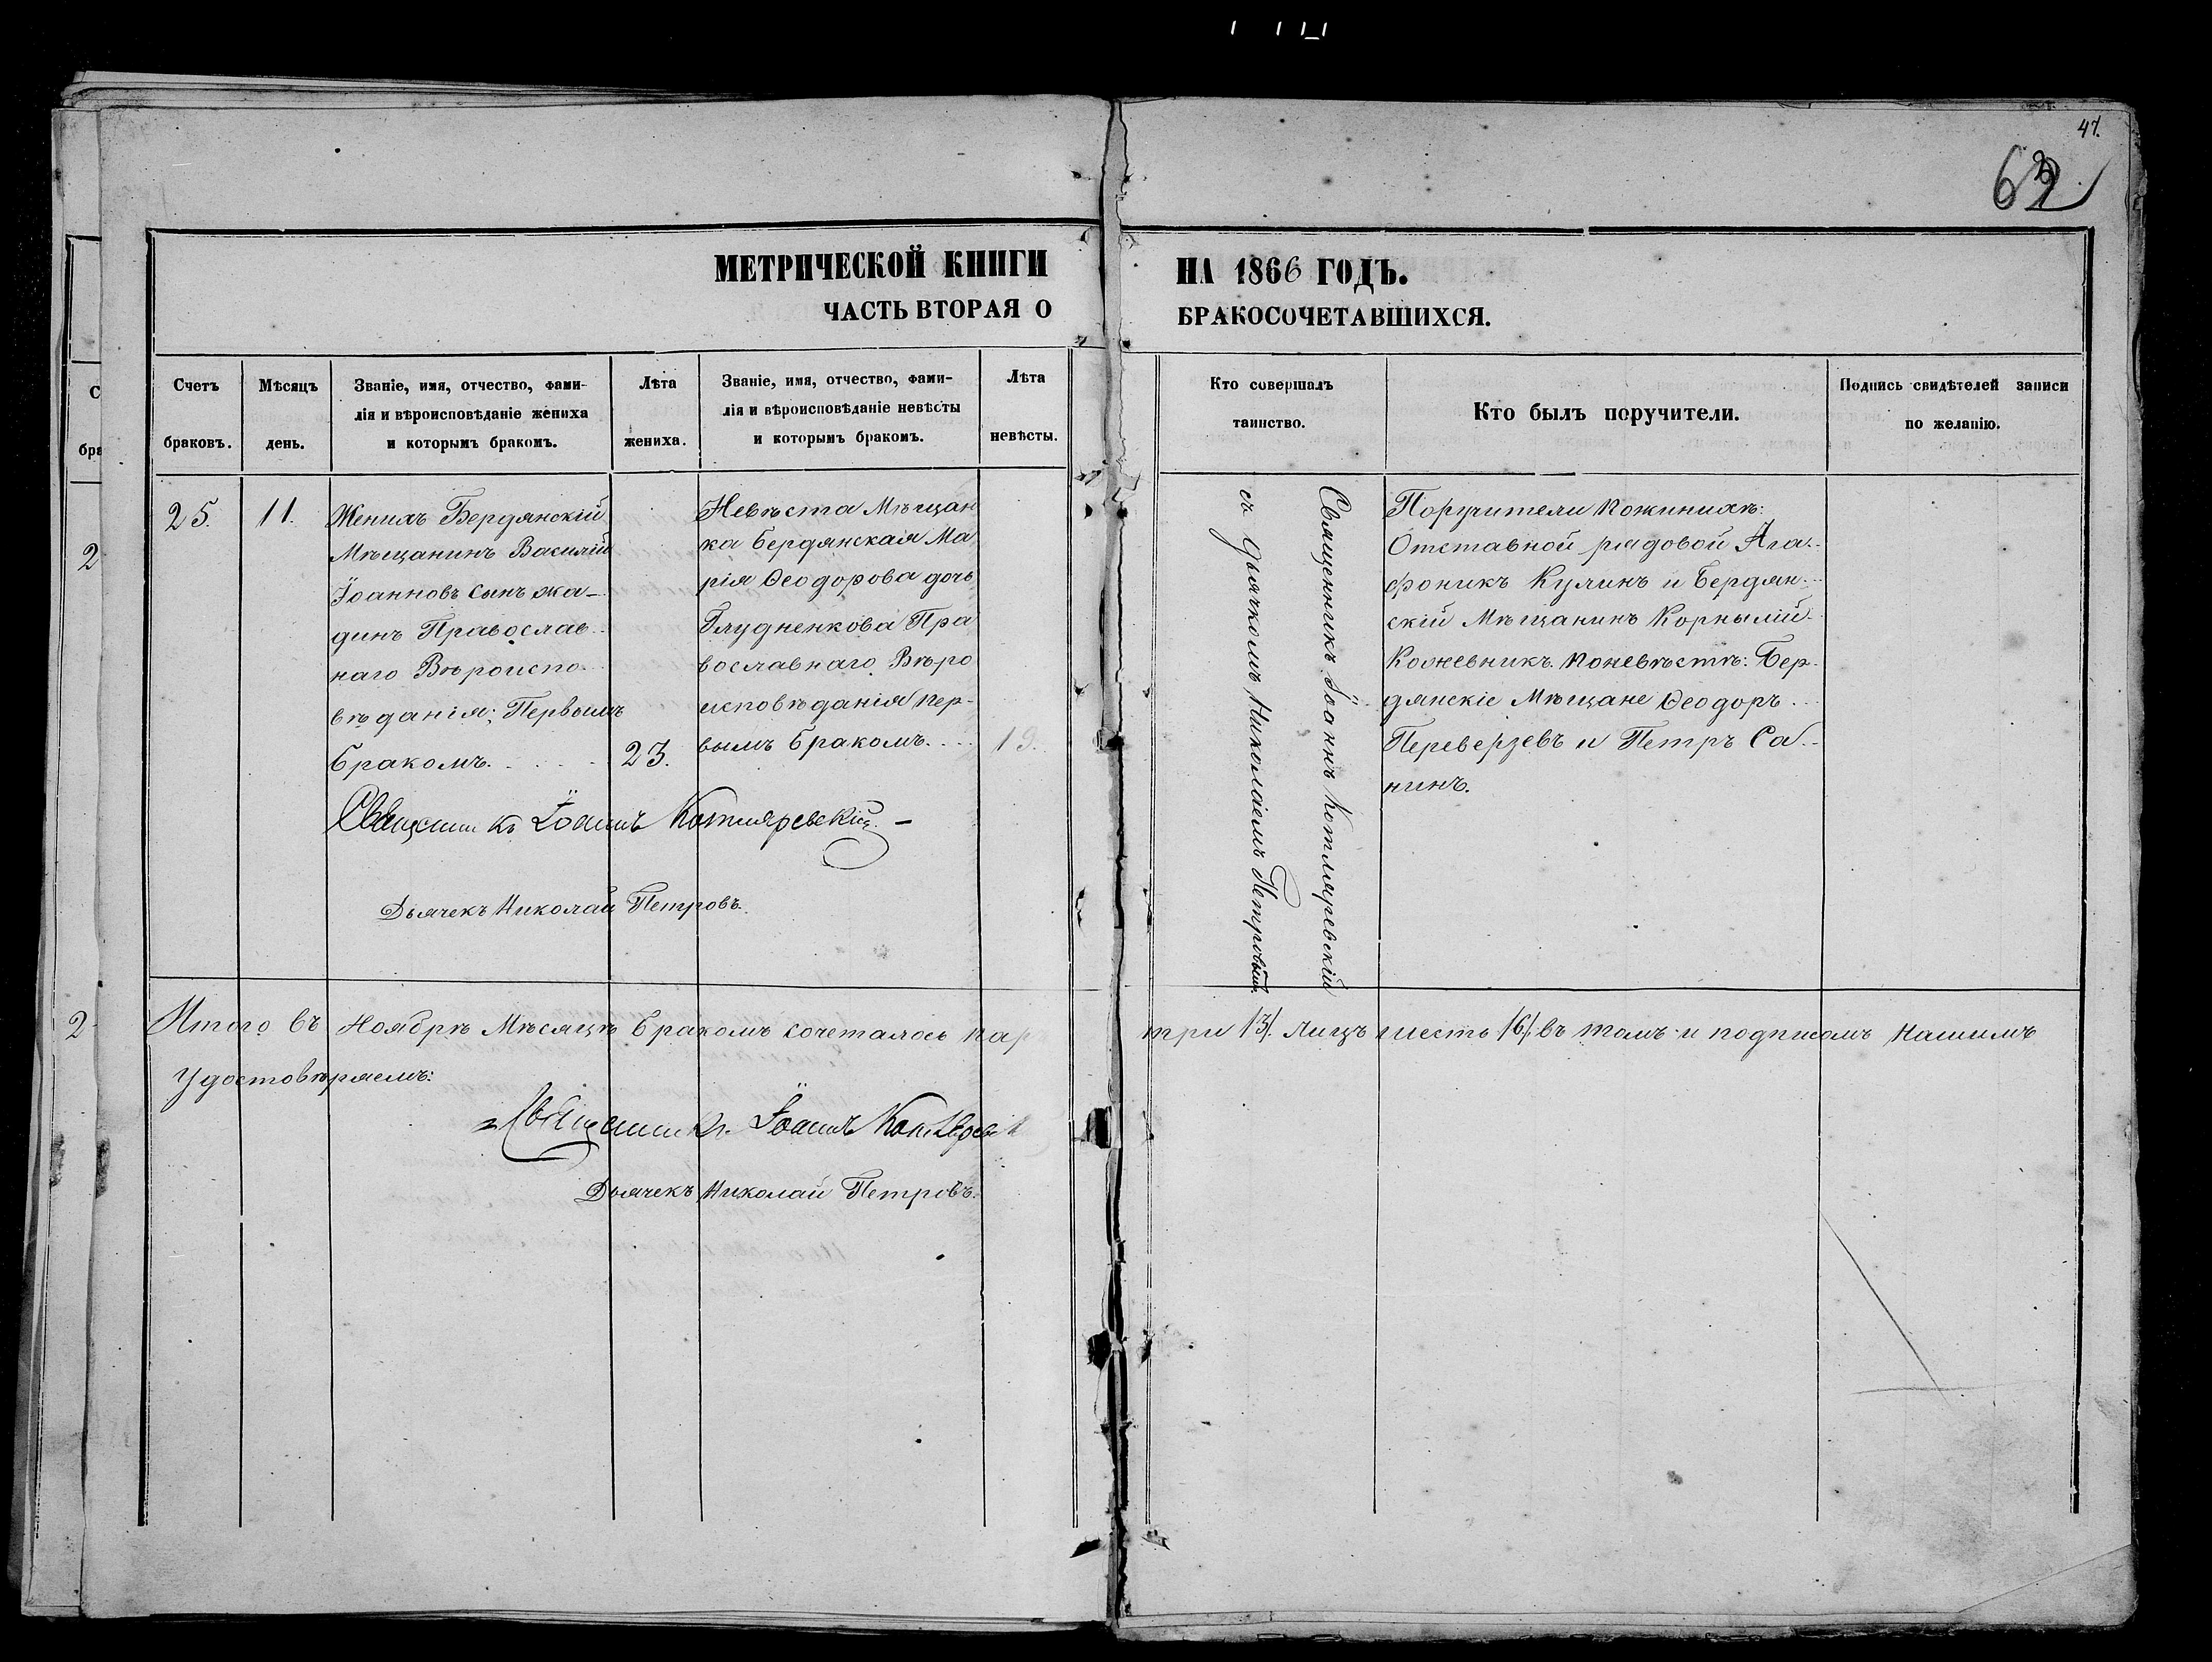 47.
62
МЕТРИЧЕСКОЙ КНИГИ
НА 1866 ГОДЪ.
ЧАСТЬ ВТОРАЯ О
БРАКОСОЧЕТАВШИХСЯ.
Счетъ
браковъ.
Мѣсяцъ
день.
Званіе, имя, отчество, фами-
лія и вѣроисповѣданіе жениха
и которымъ бракомъ.
Лѣта
жениха.
Званіе, имя, отчество, фами-
лія и вѣроисповѣданіе невѣсты
и которымъ бракомъ.
Лѣта
невѣсты.
Кто совершалъ
таинство.
Кто былъ поручители.
Подпись свидѣтелей записи
по желанію.
25.
11.
Женихъ Бердянскій
Мѣщанинъ Василій
Іоанновъ сынъ Жа-
динъ Православ-
наго Вѣроиспо-
вѣданія; Первымъ
бракомъ.
23.
Невѣста Мѣщан
ка Бердянская Ма
рія Ѳеодорова дочь
Блудненкова Пра
вославнаго Вѣро
исповѣданія пер-
вымъ бракомъ.
19.
Священникъ Іоаннъ Котляревскій
съ дьячкомъ Николаемъ Петровымъ.
Поручители пожинихѣ:
Отставной рядовой Ага-
фоникъ Кулинъ и Бердян-
скій Мѣщанинъ Корнылій
Кожевникъ. Поневѣстѣ: Бер-
дянскіе Мѣщане Ѳеодоръ
Переверзевъ и Петръ Са-
нинъ.
Священникъ Іоаннъ Котляревскій
Дьячекъ Николай Петровъ.
Итого въ Ноябрѣ Мѣсяцѣ бракомъ сочеталось пар три /3/. лицъ шесть /6/. въ томъ и подписомъ нашимъ
удостовѣряемъ:
Священникъ Іоаннъ
Дьячекъ Николай Петровъ.